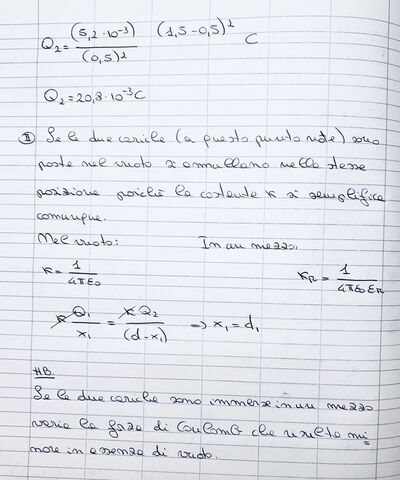 Q₂ = (5,2·10⁻³) (1,5-0,5)² C
(0,5)²
Q₂ = 20,8·10⁻³C
II Se le due cariche (a questo punto note) sono
poste nel vuoto si annullano nella stessa
posizione poiché la costante K si semplifica
comunque.
Nel vuoto: In un mezzo:
K = 1/4πε₀ Kᵣ = 1/4πε₀εᵣ
K Q₁/x₁ = K Q₂/(d-x₁) => x₁ = d₁
NB.
Se le due cariche sono immerse in un mezzo
varia la forza di Coulomb che risulta mi
nore in assenza di vuoto.